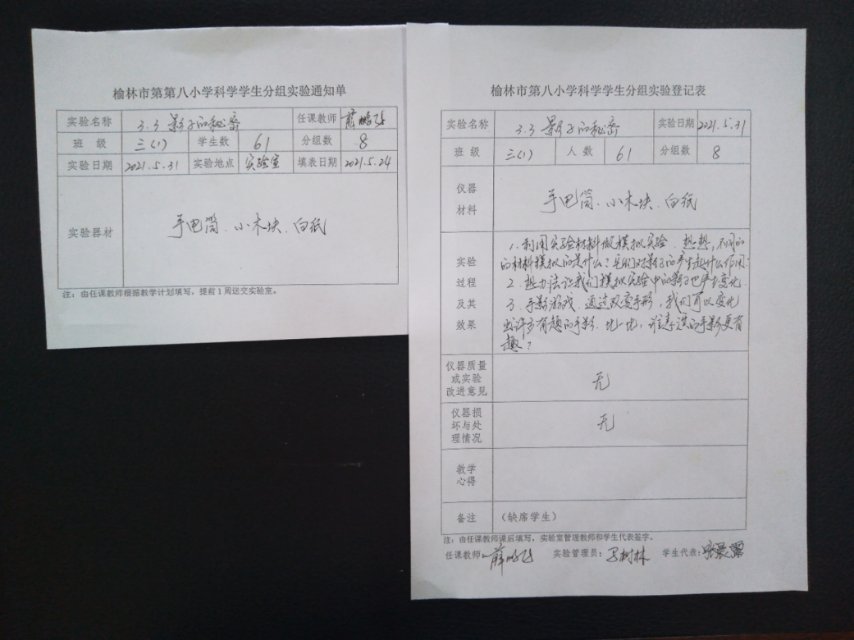 榆林市第第八小学科学学生分组实验通知单
实验名称 3.3 影子的秘密 任课教师 薛鹏飞
班 级 三(1) 学生数 61 分组数 8
实验日期 2021.5.31 实验地点 实验室 填表日期 2021.5.24
实验器材 手电筒、小木块、白纸
注：由任课教师根据教学计划填写，提前1周送交实验室。
榆林市第八小学科学学生分组实验登记表
实验名称 3.3 影子的秘密 实验日期 2021.5.31
班 级 三(1) 人 数 61 分组数 8
仪器
材料 手电筒、小木块、白纸
实验
过程
及其
效果
1. 利用实验材料做模拟实验。想想，不同的
的材料模拟的是什么？它们对影子的产生起什么作用？
2 想办法让我们模拟实验中的影子也产生变化
3. 手影游戏，通过改变手形，我们可以变化
出许多有趣的手影。比一比，谁表演的手影更有
趣？
仪器质量
或实验
改进意见 无
仪器损
坏与处
理情况 无
教学
心得
备注 （缺席学生）
注：由任课教师课后填写，实验室管理教师和学生代表签字。
任课教师：薛鹏飞 实验管理员：马树林 学生代表：